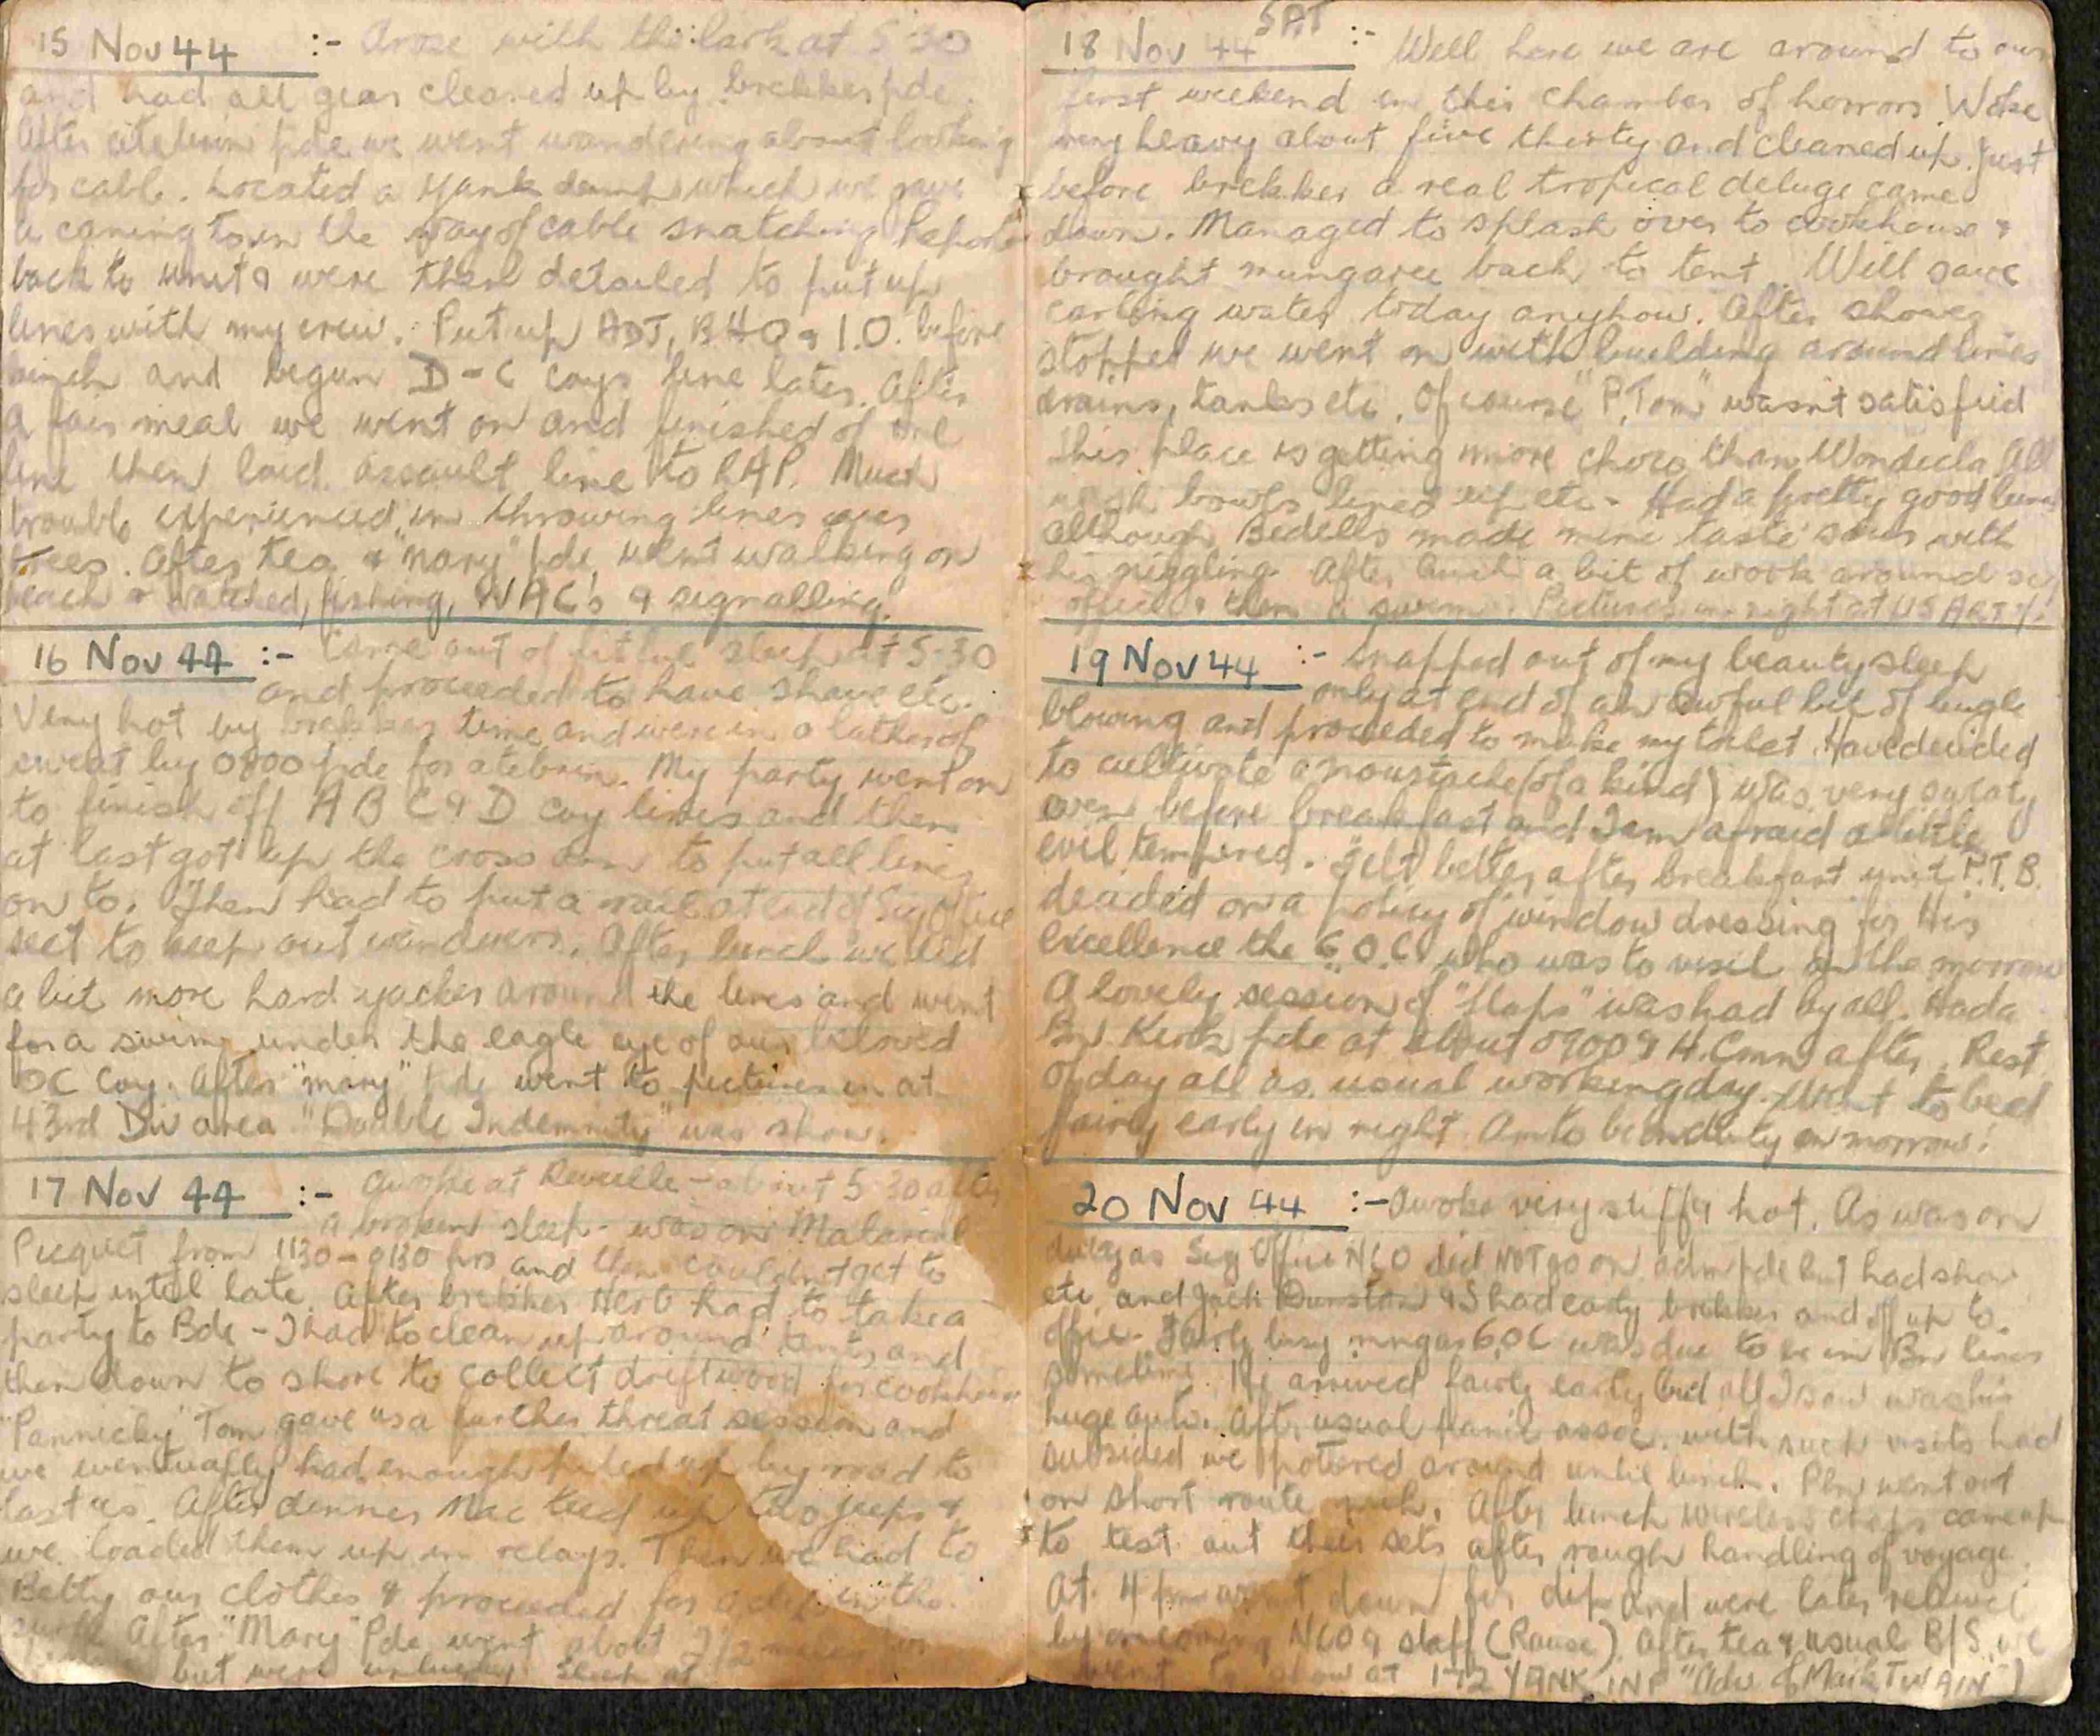 15 Nov 44 :- Arose with the lark at 5-30
and had all gear cleared up by brekker pde.
After atebrin pde we went wandering about looking
for cable. Located a Yank dump which we gave
a caning to in the way of cable snatching. Reported
back to unit & were then detailed to put up
lines with my crew. Put up ADJ, BHQ & I.O. before
lunch and begun D-C coys line later. After
a fair meal we went on and finished of one
line then laid assault line to RAP. Much
trouble experienced in throwing lines over
trees. After tea & "mary" pde, went walking on
beach & watched, fishing, WAC's & signalling.
16 Nov 44 :- Came out of sleep at 5-30
and proceeded to have shave etc.
Very hot by brekker time and were in a lather of
sweat by 0800 pde for atebrin. My party went on
to finish off A B C & D coy lines and then
at last got up the cross arm to put all lines
on to. Then had to put a rail at end of Sig Office
to keep out wanderers. After lunch we did
a bit more hard yacker around the lines and went
for a swim under the eagle eye of our beloved
OC Coy. After "mary" pde went to pictures in at
43rd Div area. "Double Indemnity" was shown.
17 Nov 44 :- Awoke at Reveille - about 5-30 after
a broken sleep - was on Malarial
Picquet from 1130 - 0130 hrs and then couldn't get to
sleep until late. After brekker Herb had to take a
party to Bde - I had to clean up around tents and
then down to shore to collect driftwood for cookhouse
"Pannicky" Tom gave us a further threat session and
we eventually had enough piled up by road to
last us. After dinner Mac teed up two jeeps &
we loaded them up in relays. Then we had to
Betty our clothes & proceeded for a dip in the
surf. After "Mary" Pde went about 2 1/2 miles
but were unlucky. Sleep at
18 Nov 44 SAT :- Well here we are around to our
first weekend in this chamber of horrors. Woke
very heavy about five thirty and cleaned up. Just
before brekker a real tropical deluge came
down. Managed to splash over to cookhouse &
brought mungaree back to tent. Will save
carting water today anyhow. After shower
stopped we went on with building around lines
drains, tanks etc. Of course "P. Tom" wasn't satisfied
This place is getting more choco than Wondecla. All
wash bowls lined up etc - Had a pretty good lunch
although Bedells made mine taste sour with
his niggling. After lunch a bit of work around sig
office & then a swim. Pictures in night at US ARTY.
19 Nov 44 :- Snapped out of my beauty sleep
only at end of an awful bit of bugle
blowing and proceeded to make my toilet. Have decided
to cultivate a moustache (of a kind) was very sweaty
even before breakfast and I am afraid a little
evil tempered. Felt better after breakfast until P.T.B.
decided on a policy of window dressing for His
Excellence the G.O.C. who was to visit on the morrow
A lovely session of "flaps" was had by all. Had a
Bn Kerk pde at about 0900 & H. Comm after. Rest
of day all as usual working day. Went to bed
fairly early in night. Am to be on duty on morrow!
20 Nov 44 :- Awoke very stiff & hot. As was on
duty as Sig Office NCO did NOT go on adm pde but had shave
etc. and Jack Dunston & I had early brekker and off up to
office. Fairly busy mng as GOC was due to be in Bn lines
sometime. He arrived fairly early and all I saw was his
huge auto. After usual panic assoc. with such visits had
subsided we pottered around until lunch. Pln went out
on short route mch. After lunch wireless chaps came up
to test out their sets after rough handling of voyage.
At 4 pm went down for dip and were later relieved
by oncoming NCO & staff (Rouse). After tea & usual B/S we
went to show at 172 YANK INF "Adv of Mark TWAIN")